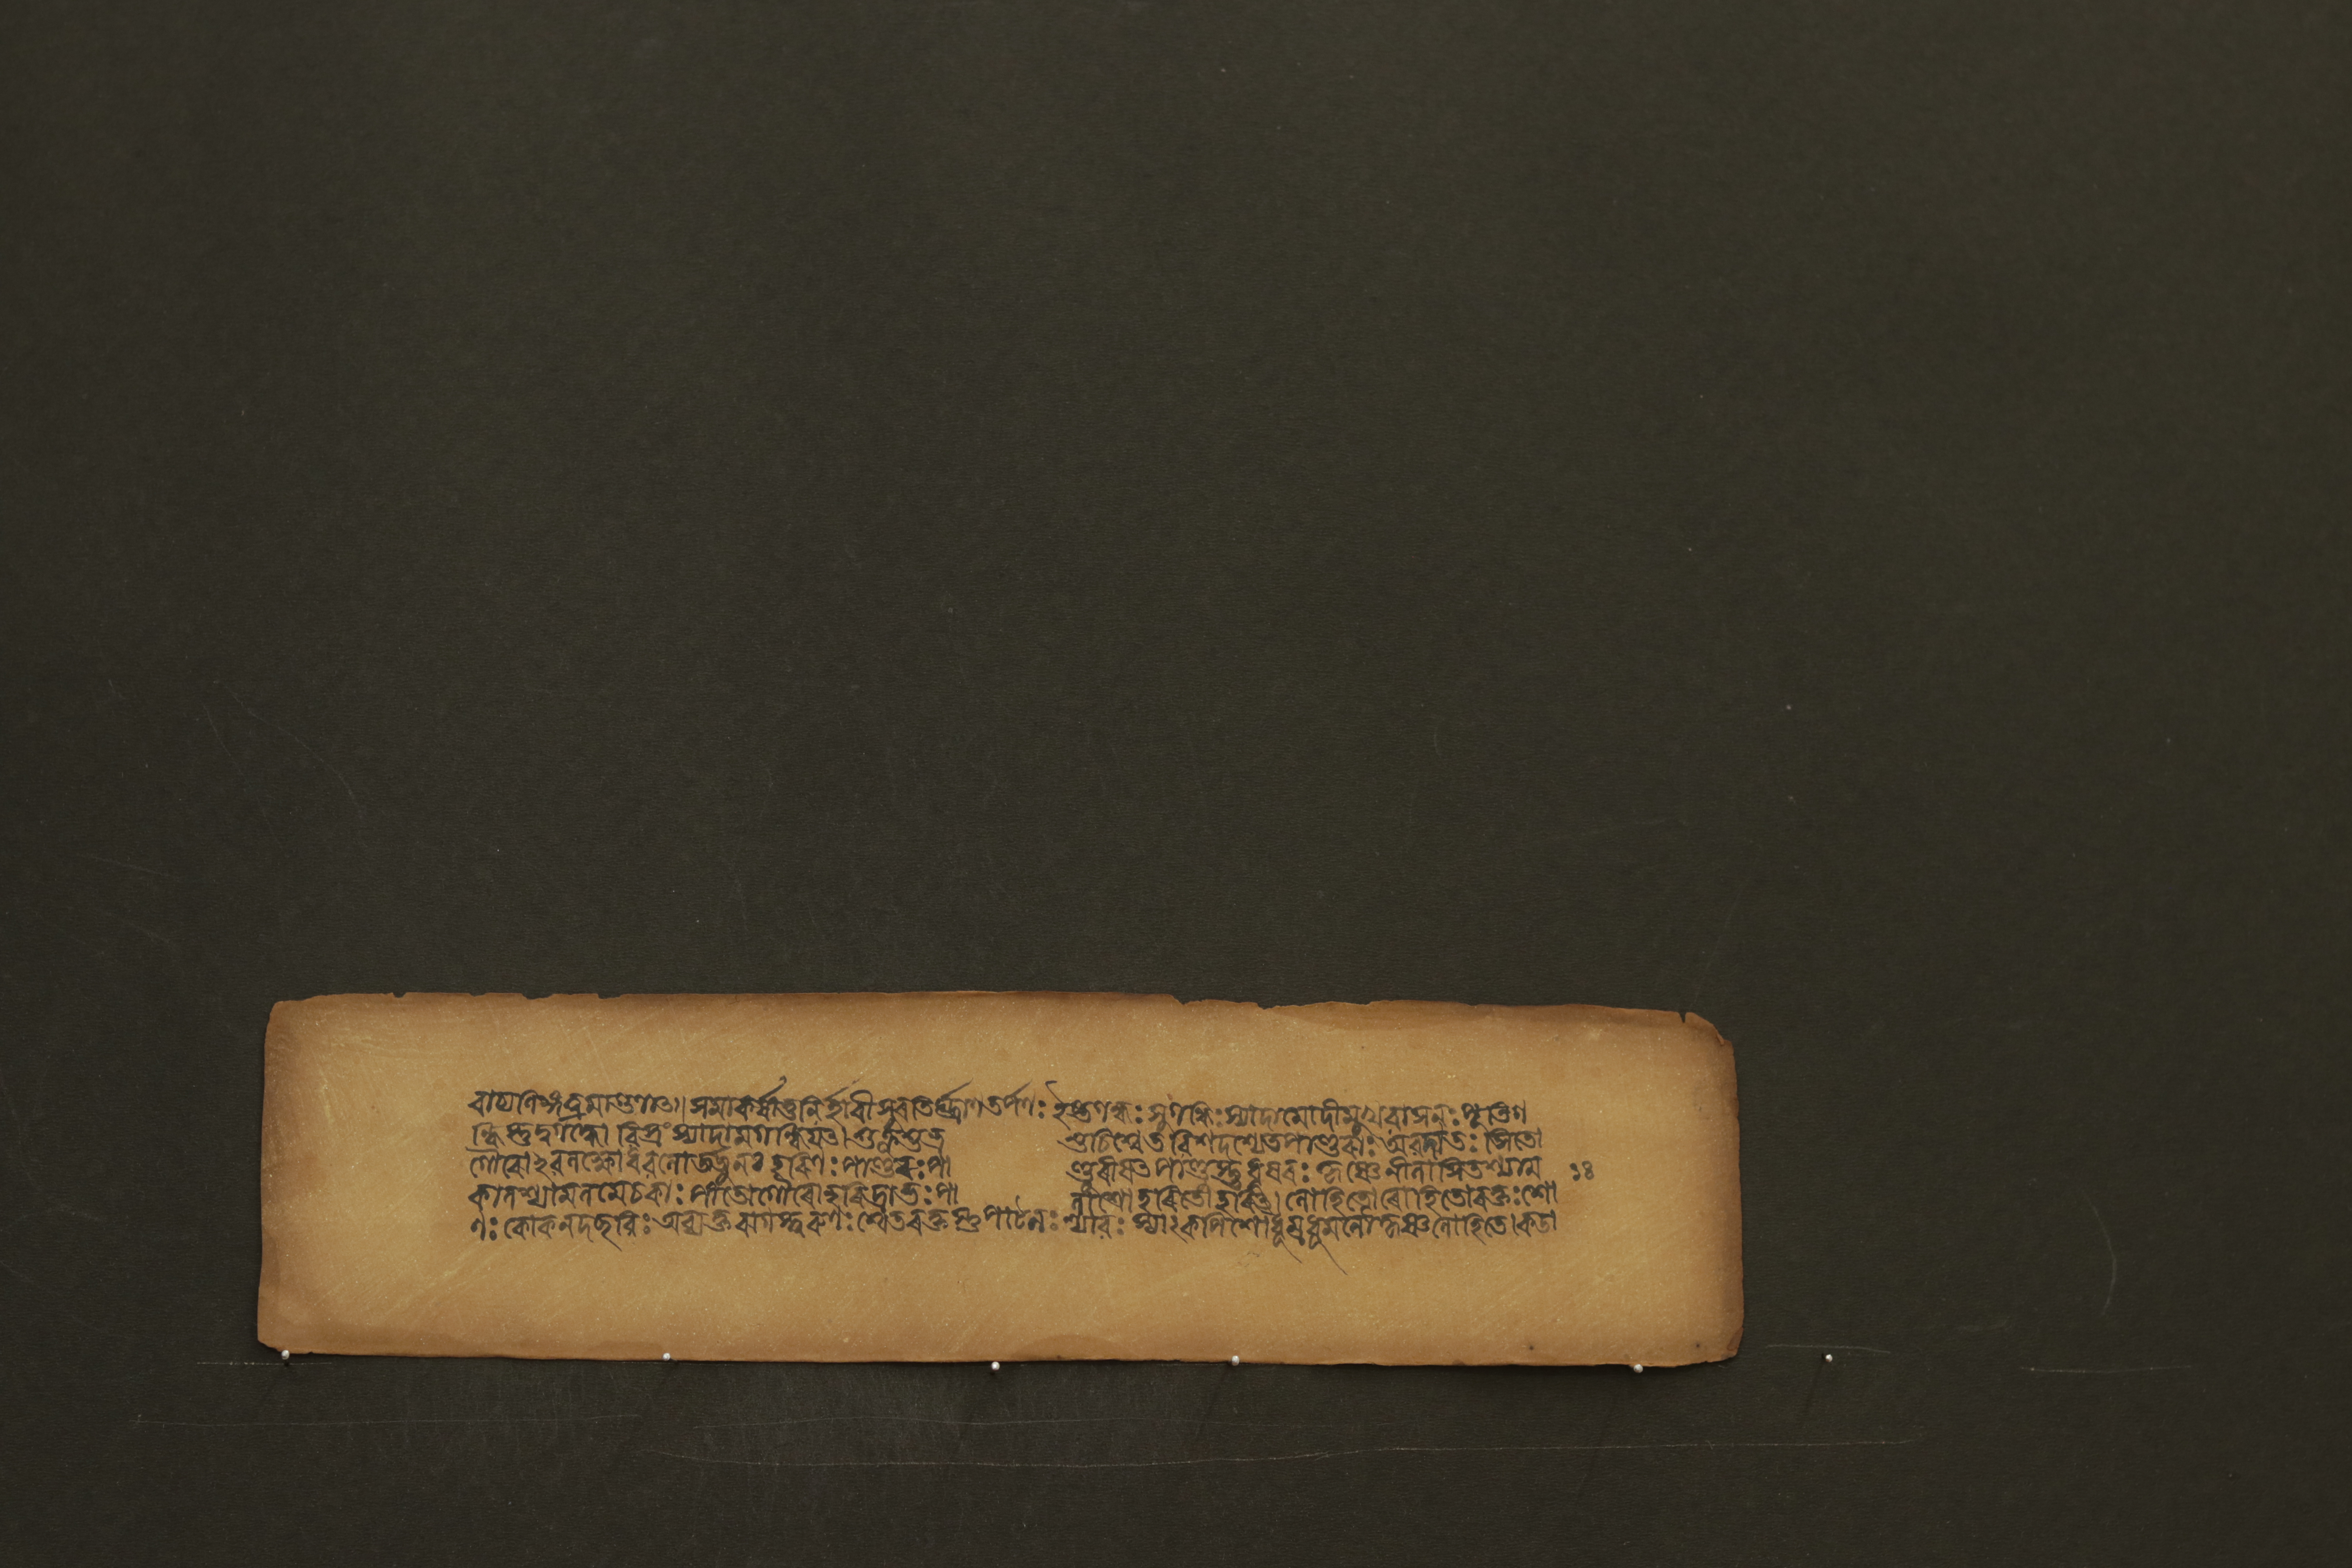 বাচ্যলিঙ্গত্বমাগুণাৎ॥ সমাকর্ষীতুনির্হাৰীসুৰভির্ঘ্রাণতর্পণঃ ইষ্টগন্ধঃ সুগন্ধিঃ স্যাদামোদীমুখবাসনঃ পূতিগ
ন্ধিস্তু দুর্গন্ধো বিস্রং স্যাদামগন্ধিযৎ। শুক্লশুভ্র শুচিশ্বেত বিশদশ্যেতপাণ্ডৰাঃ অবদাতঃ সিতো
গৌৰোঽবলক্ষোধবলোর্জ্জুনঃ হৰিণঃ পাণ্ডুৰঃ পা ণ্ডুৰীষৎ পাণ্ডুস্তু ধূষৰঃ কৃষ্ণেনীলাসিতশ্যাম ১৪
কালশ্যামলমেচকাঃ পীতোগৌৰোহৰিদ্রাভঃ পা লাশো হৰিতো হৰিৎ। লোহিতো ৰোহিতো ৰক্তঃ শো
ণঃ কোকনদছবিঃ অব্যক্তৰাগস্ত্বৰুণঃ শ্বেতৰক্তস্তু পাটলঃ শ্যাবঃ স্যাৎকপিশোধূম্রধূমলৌকৃষ্ণলোহিতে। কডা